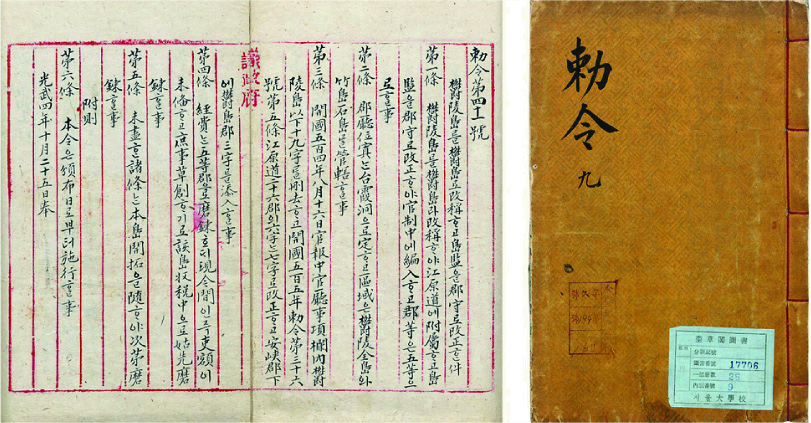 勅令第四十一號
欝陵島를欝島로改稱ᄒᆞ고島監을郡守로改正ᄒᆞᆫ件
第一條 欝陵島를欝島라改稱ᄒᆞ야江原道에附屬ᄒᆞ고島
監을郡守로改正ᄒᆞ야官制中에編入ᄒᆞ고郡等은五等으
로ᄒᆞᆯ事
第二條 郡廳位寘ᄂᆞᆫ台霞洞으로定ᄒᆞ고區域은欝陵全島와
竹島石島를管轄ᄒᆞᆯ事
第三條 開國五百四年八月十六日官報中官廳事項欄內欝
陵島以下十九字를刪去ᄒᆞ고開國五百五年勅令第三十六
號第五條江原道二十六郡의六字ᄂᆞᆫ七字로改正ᄒᆞ고安峽郡下
議政府
에欝島郡三字를添入ᄒᆞᆯ事
第四條 經費ᄂᆞᆫ五等郡으로磨鍊호ᄃᆡ現今間인즉吏額이
未備ᄒᆞ고庶事草創ᄒᆞ기로該島收稅中으로姑先磨
鍊ᄒᆞᆯ事
第五條 未盡ᄒᆞᆫ諸條ᄂᆞᆫ本島開拓을隨ᄒᆞ야次第磨
鍊ᄒᆞᆯ事
附則
第六條 本令은頒布日로부터施行ᄒᆞᆯ事
光武四年十月二十五日奉
勅令 九
奎章閣圖書
圖書番號 17706
一部冊數
9
서울大學校